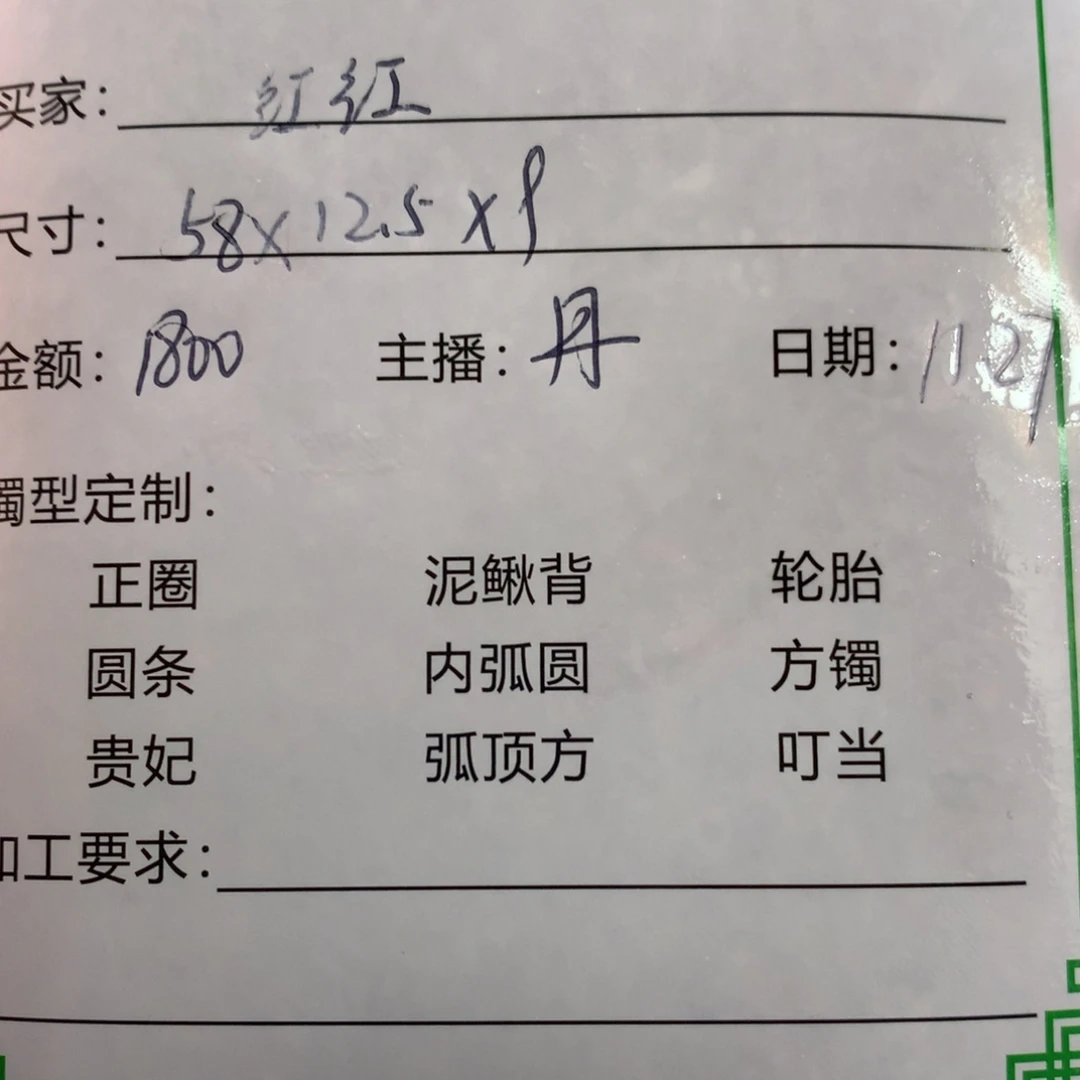 买家: 红红
尺寸: 58×12.5×9
金额: 1800 主播: 丹 日期: 11.27
镯型定制:
正圈 泥鳅背 轮胎
圆条 内弧圆 方镯
贵妃 弧顶方 叮当
加工要求: